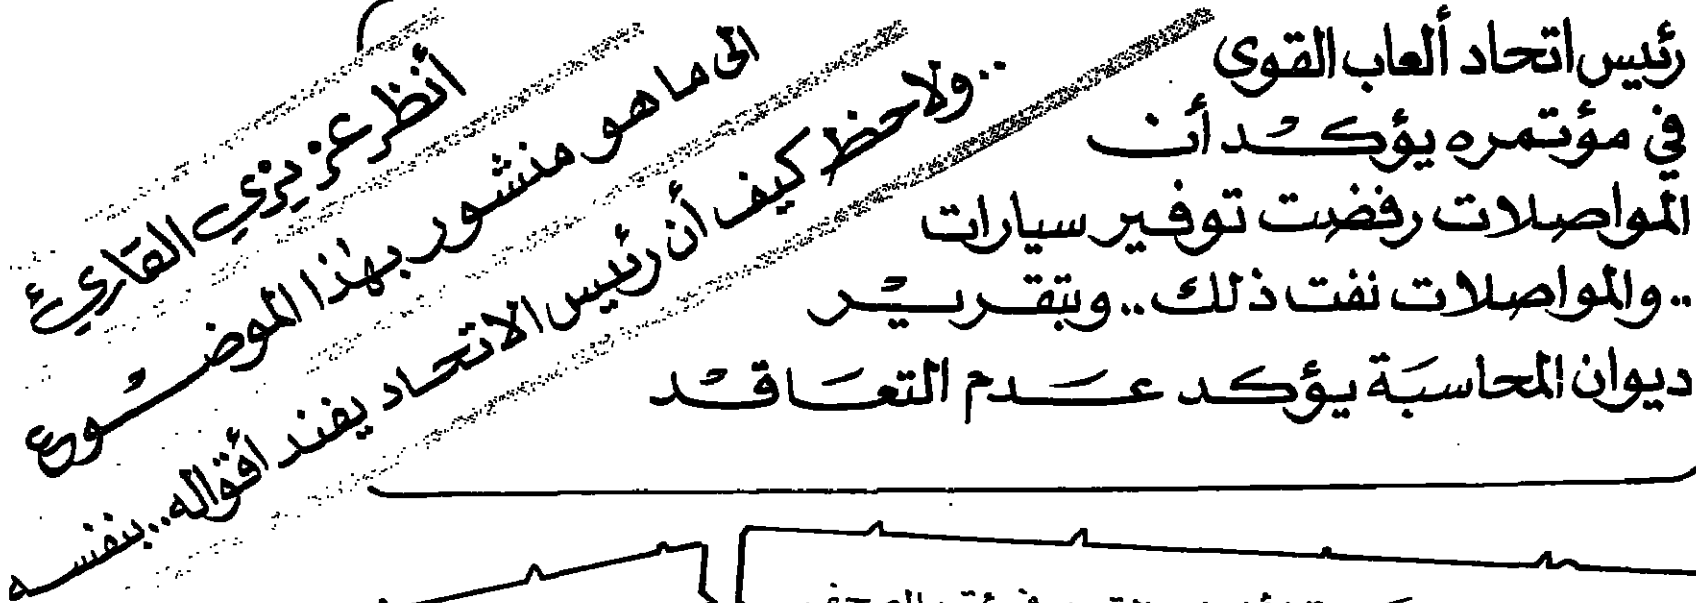 رئيس اتحاد ألعاب القوى
في مؤتمره يؤكد أن
المواصلات رفضت توفير سيارات
.. والمواصلات نفت ذلك .. وبتقرير
ديوان المحاسبة يؤكد عدم التعاقد
أنظر عزيزي القاريء
الى ما هو منشور بهذا الموضوع
.. ولاحظ كيف أن رئيس الاتحاد يفند أقواله .. بنفسه